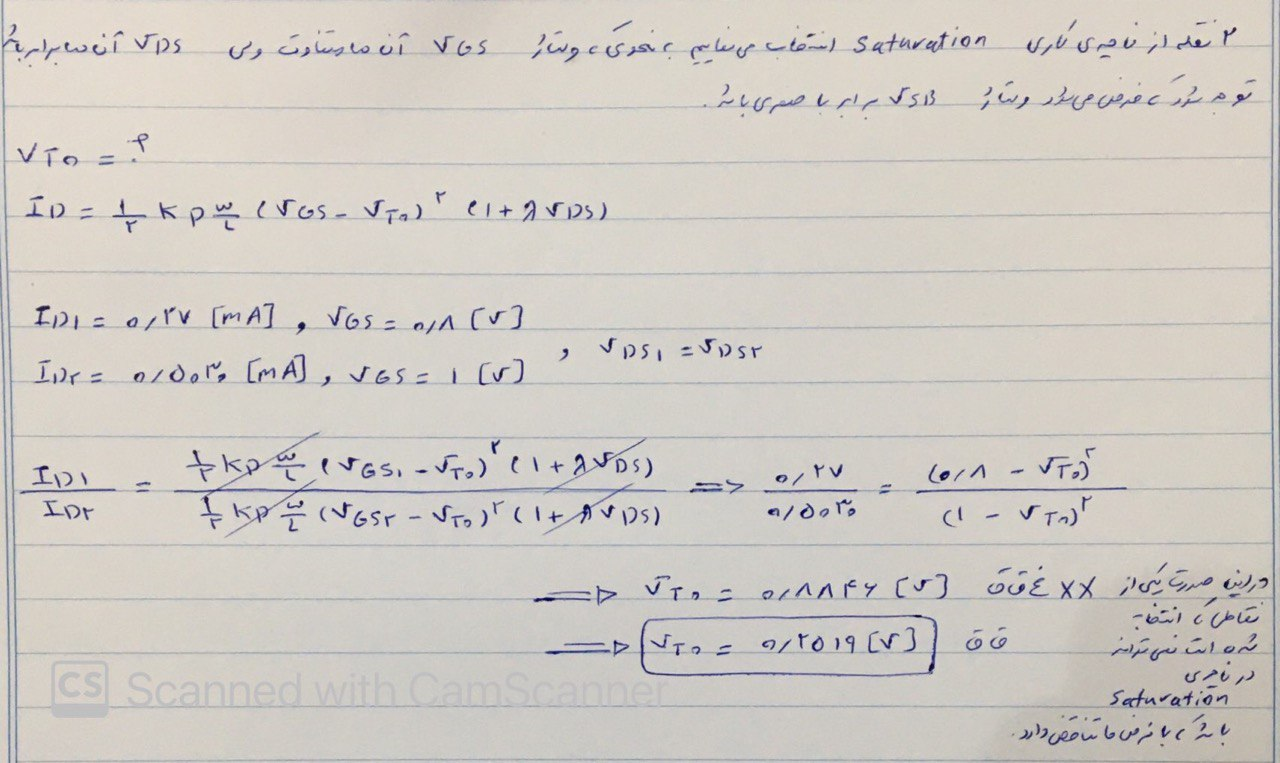 ۲ نقطه از ناحیه ی کاری Saturation انتخاب می نماییم به نحوی که ولتاژ VGS آن ها متفاوت ولی VDS آن ها برابر باشد
توجه شود که فرض می شود ولتاژ VSB برابر با صفر می باشد.
VT0 = ?
ID = ۱/۲ Kp W/L (VGS - VT0)^۲ (1 + λVDS)
ID1 = ۰/۲۷ [mA] , VGS = ۰/۸ [V]
, VDS1 = VDS۲
ID۲ = ۰/۵۰۳۰ [mA] , VGS = 1 [V]
ID1/ID۲ = ۱/۲ Kp W/L (VGS1 - VT0)^۲ (1 + λVDS) / ۱/۲ Kp W/L (VGS۲ - VT0)^۲ (1 + λVDS) => ۰/۲۷ / ۰/۵۰۳۰ = (۰/۸ - VT0)^۲ / (1 - VT0)^۲
=> VT0 = ۰/۸۸۴۶ [V] غ ق ق XX
=> VT0 = ۰/۲۵۱۹ [V] ق ق
در این صورت یکی از
نقاطی که انتخاب
شده است نمی تواند
در ناحیه ی
Saturation
باشد که با فرض ما تناقض دارد.
CS Scanned with CamScanner